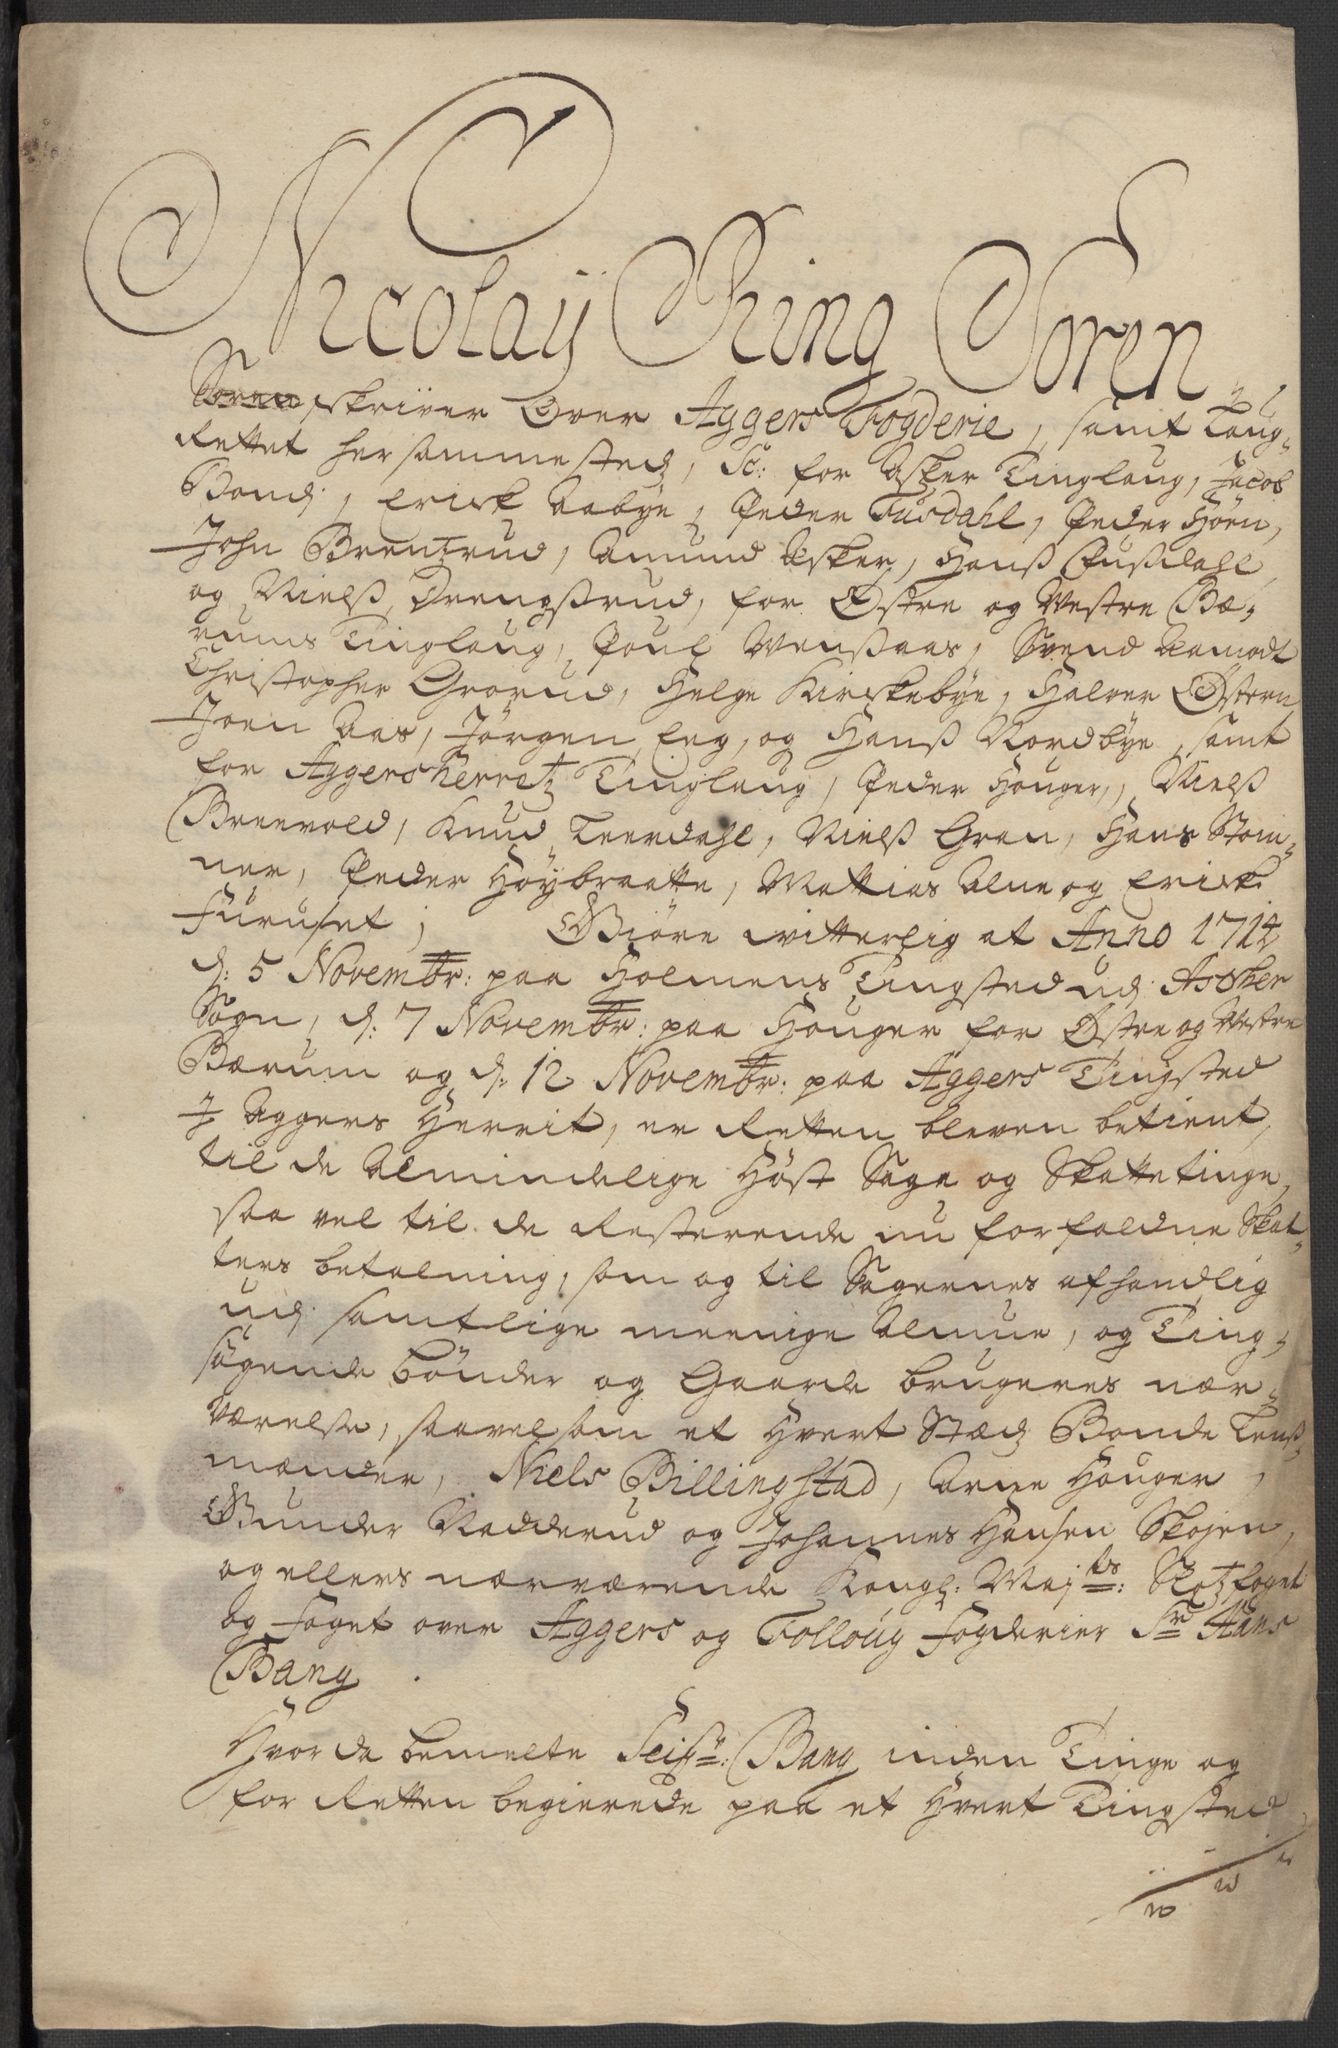 Nicolaÿ Ring Soren
Soren skriver Over Aggers Fogderie, samt Laug-
Rettet hersammestedz, Sc: for Asker Tinglaug, Jacob
Bond, Erick Aabye, Peder Fusdahl, Peder Hørn,
John Brentzrud, Amund Asker, Hanß Fußdahl,
og Nielß Drengßrud, for Østre og Westre Bæ-
rums Tinglaug, Poul Wenßaas, Svend Aamodt
Christopher Grorud, Helge Kirckebye, Halvor Østern
Joen Aas, Jørgen Eeg, og Hanß Nordbye, samt
for Aggersherretz Tinglaug, Peder Houger, Nielß
Breevold, Knud Leerdahl, Nielß Gran, Hans Stom-
ner, Peder Høybraatte, Mattias Alne og Erick
Furuset; Giøre witterlig at Anno 1714
d: 5 Novembr: paa Holmens Tingsted udj Ascher
Sogn, d: 7 Novembr: paa Houger for Østre og Westre
Bærum og d: 12 Novembr: paa Aggers Tingsted
J Aggers Herrit, er Retten bleven betient,
til de Almindelige Høst Sage og Skattetinge,
saa vel til de Resterende nu forfaldne Skat-
ters betalning, som og til Sagernes afhandlig
udj samtlige meenige Almue, og Ting-
søgende bønder og Gaarde brugeres nær-
værelse, saavelsom et Hvert Stædz Bonde Lenß-
mænder, Niels Billingstad, Arne Houger,
Gunder Nadderud og Johannes Hansen Skojen,
og ellers nærværende Kongl: Majts: Skatzfoget
og Foget over Aggers og Folloug Fogderier Sr Hans
Bang
Hvor da bemelte Seigr: Bang inden Tinge og
for Retten begierede paa et Hvert Tingsted